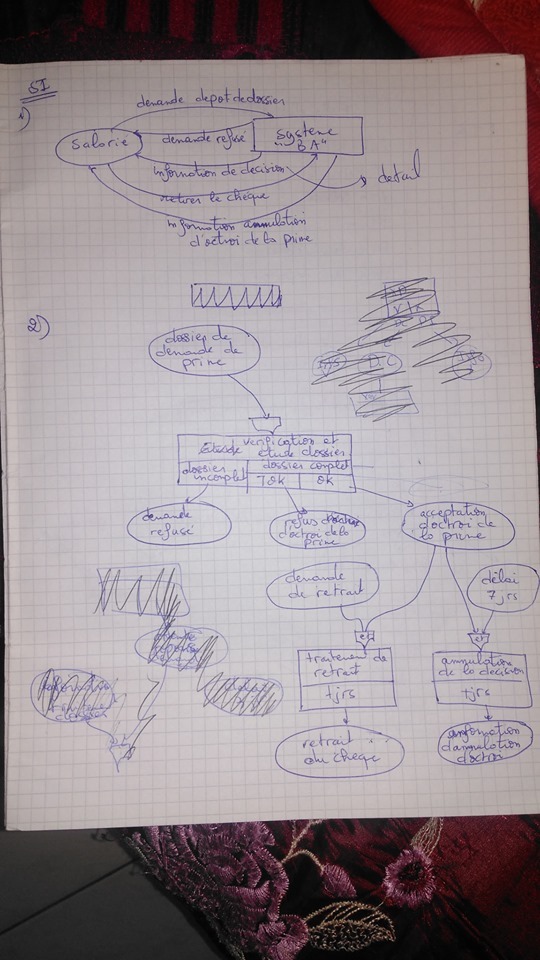 SI
1)
demande depot de dossier
Salarie
demande refusé
système
"BA"
information de decision
detail
retirer le chèque
information annulation
d'octroi de la prime
2)
dossier de
demande de
prime
verification et
etude dossier
dossier
incomplet
dossier complet
7ok
ok
demande
refusé
refus
d'octroi de la
prime
acceptation
d'octroi de
la prime
demande
de retrait
délai
7 jrs
et
et
traitement de
retrait
tjrs
annulation
de la decision
tjrs
retrait
du chèque
information
d'annulation
d'octroi